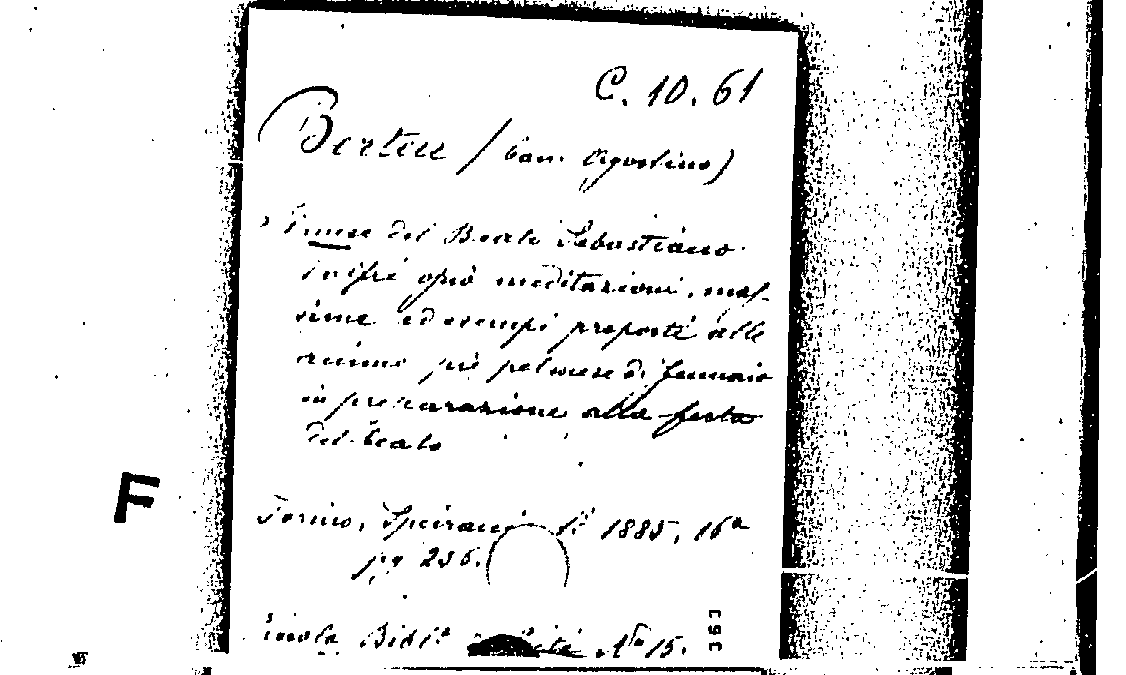 C. 10. 61
Berteu / Can. Agostino)
del Beato Sebastiano
meditazioni, mas-
sime ed esempi proposti alle
anime pie pel mese di Gennaio
in preparazione alla festa
del beato
F
Torino, Speirani 1885, 16°
pg 236.
Bibl° No 15.